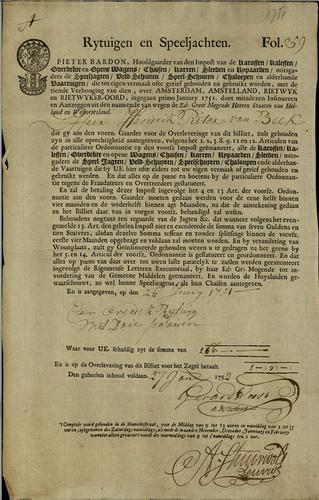 1751
Rytuigen en Speeljachten. Fol. 259
PIETER BARDON, Hoofdgaarder van den Impost van de Karossen / Kalessen /
Overdekte en Opene Wagens / Chaisen / Karren / Sleeden en Rypaarden / mitsga-
ders de Speeljagten / Veld-Schuiten / Speel-Schuiten / Chaloepen en alderhande
Vaartuigen / die tot eigen vermaak ofte gerief gehouden en gebruikt werden, met de
tiende Verhooging van dien, over AMSTERDAM, AMSTELLAND, RIETWYK
en RIETWYKER-OORD, ingegaan primo January 1751. doet mindelren Insinueren
en Aanzeggen uit den naam en van wegen de Ed: Groot Mogende Heeren Staaten van Hol-
land en Westvriesland.
van Beek
dit gy aan den voorn. Gaarder voor de Overleveringe van dit billiet, zult gehouden
zyn in alle oprechtigheid aantegeven, volgens het 1. 2. 3. 8. 9. 11 en 12. Articulen van
de particuliere Ordonnantie op den voorsz Impost geëmaneert, alle de Karossen / Ka-
lessen / Overdekte en opene Wagens / Chaisen / Karren / Rypaarden / Sleeden / mits-
gaders de Speel Jagten / Veld-Schuiten / Speelschuyten / Chaloupen en alderhande
Vaartuigen die by UE. hier ofte elders tot uw eigen vermaak of gerief gehouden en
gebruikt werden. En dat alles op de pœne en boetens by de particuliere Ordonnan-
tie tegens de Fraudateurs en Overtreeders gestatueert.
En zal de betaling dezer Impost ingevolge het 4 en 13 Art. der voorsz. Ordon-
nantie aan den voorn. Gaarder moeten gedaan worden voor de eene helft binnen
vier maanden en de wederhelft binnen agt maanden, na dat de aantekening gedaan
en het Billiet daar van in voegen voorsz. behandigt zal wesen.
Behoudens nogtans ten reguarde van de Jagten &c. dat wanneer volgens het even-
gemelde 13. Art. den geheelen Impost niet en excedeerde de somma van seven Guldens en
tien Stuivers, alsdan dezelve Somma teffens en zonder splitsinge binnen de voorsz.
eerste vier Maanden opgebragt en voldaan zal moeten worden. En by verandering van
Woonplaats, zult gy Geinsinueerde gehouden wezen u te gedragen na het geene by
het 5. en 14. Articul der voorsz. Ordonnantie is gestatueert en geordonneert. En dat
alles op pœne van daar over tot uwen laste parately k te zullen werden geexecuteert
ingevolge de Rigoureuse Letteren Executoriaal, by haar Ed: Gr. Mogende tot in-
vordering van de Gemeene Middelen geëmaneert. En worden de Huysluiden ge-
waarschouwt, zo wel hunne Speelwagens als hun Chaisen aantegeven.
En is aangegeven, op den 26 Juny 1751
Waar voor UE. schuldig zyt de somma van
En is op de Overlevering van dit Billiet voor het Zegel betaalt
Den geheelen inhoud voldaan,
't Comptoir word gehouden in de Munnikstraat, voor de Middag van 9 tot 12 uuren en namiddag van 2 tot 5
uuren, uitgenomen des Zaturdags namiddags, als mede de maanden November, December, January en February
wanneer alleen gevaceert wordt des voormiddags van 9 tot 's namiddags ten 2 uur.